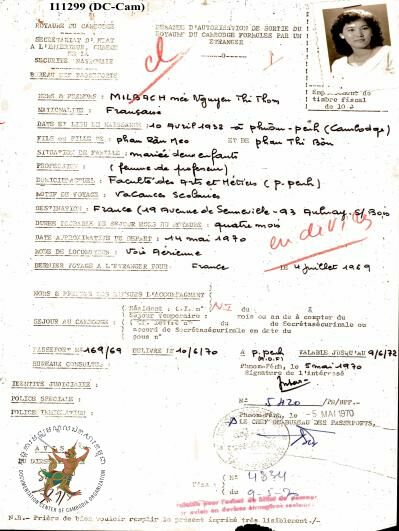 I11299 (DC-Cam)
ROYAUME DU CAMBODGE
DEMANDE D'AUTORISATION DE SORTIE DU
ROYAUME DU CAMBODGE FORMULEE PAR UN
ETRANGER
SECRETARIAT D'ETAT
A L'INTERIEUR, CHARGE
DE LA
SECURITE NATIONALE
BUREAU DES PASSEPORTS
cl
Emplacement de
timbre fiscal
de 10 R
NOMS & PRENOMS : MILBACH née Nguyen Thi Thom
NATIONALITE : Française
DATE ET LIEU DE NAISSANCE 10 Avril 1932 à Phnom-penh (Cambodge)
FILS ou FILLE DE : phan Van Meo ET DE phan Thi Bôn
SITUATION DE FAMILLE : mariée deux enfants
PROFESSION : (femme de professeur)
DOMICILE ACTUEL : Faculté des Arts et Métiers (p.penh)
MOTIF DU VOYAGE : Vacances Scolaires
DESTINATION : France (19 Avenue de Senneville - 93 Aulnay S/Bois
DUREE PROBABLE DE SEJOUR HORS DU ROYAUME : quatre mois
en devises
DATE APPROXIMATIVE DE DEPART : 14 mai 1970
MODE DE LOCOMOTION : Voie Aérienne
DERNIER VOYAGE A L'ETRANGER POUR : France LE 4 juillet 1969
NOMS & PRENOMS DES L'ACCOMPAGNANT
SEJOUR AU CAMBODGE :
Résident : C.I. n° du
Séjour temporaire : mois ou an à compter du
accord de Secrétaséurinale en date du
pous n°
PASSEPORT N° 169/69 DELIVRE LE 10/6/70 A p.penh VALABLE JUSQU'AU 9/6/72
BUREAUX CONSULTES :
Phnom-Penh, le 5 mai 1970
Signature de l'intéressé
IDENTITE JUDICIAIRE :
N° 5420 /SN/BPP.-
POLICE SPECIALE :
Phnom-Penh, le - 5 MAI 1970
POLICE IMMIGRATION :
LE CHEF DU BUREAU DES PASSEPORTS,
AVIS
DU DIRE
Visa : N° 4334
du
DOCUMENTATION CENTER OF CAMBODIA ORGANIZATION
N.B.- Prière de bien vouloir remplir le présent imprimé très lisiblement./-